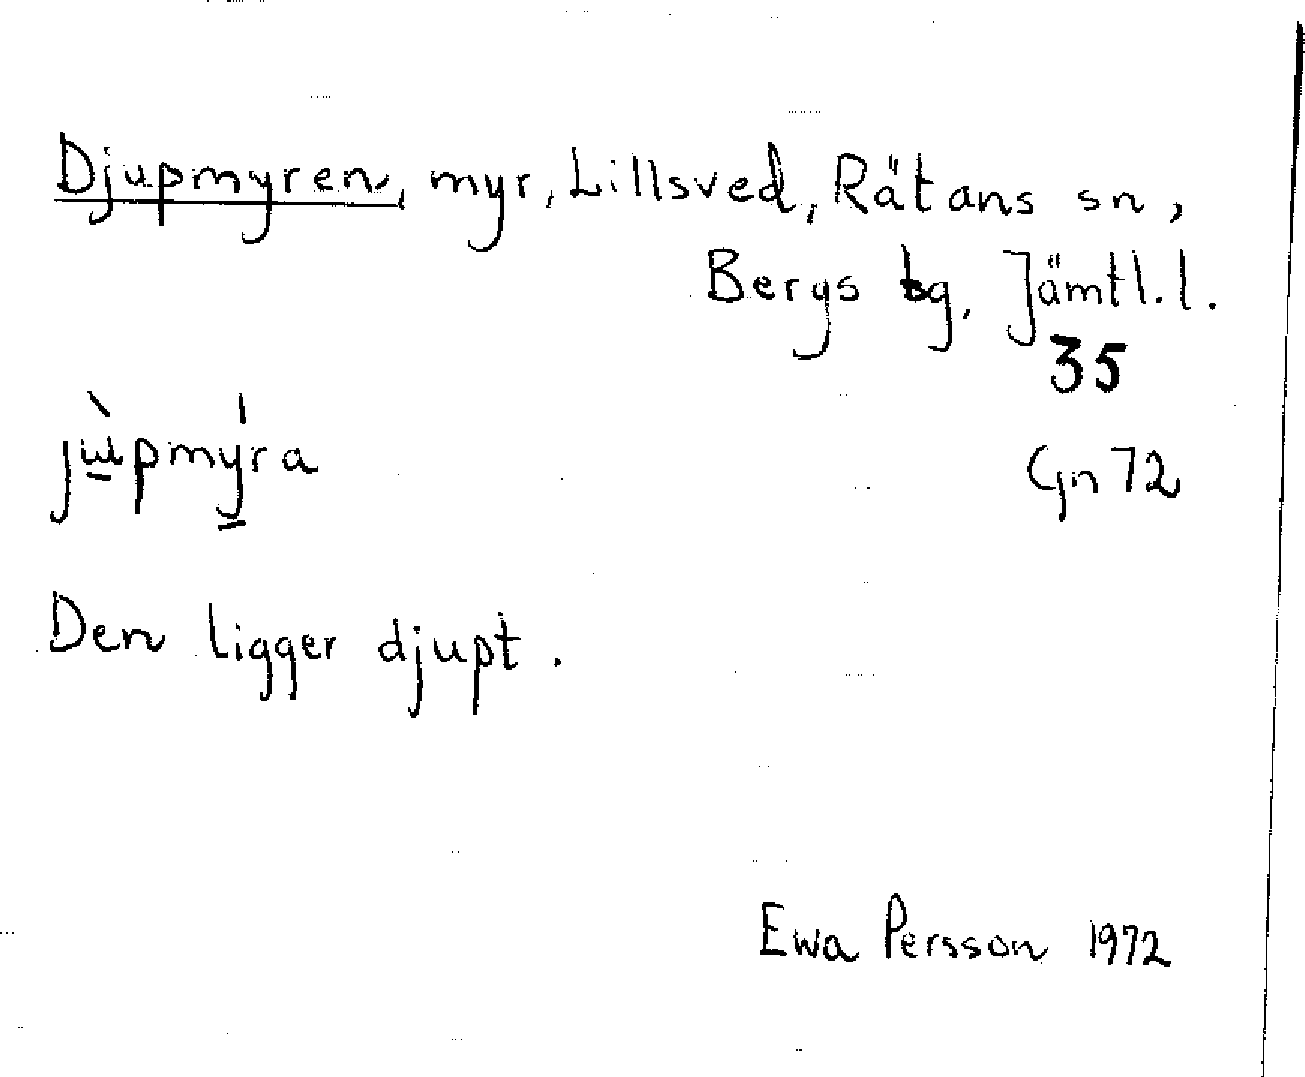 Djupmyren, myr, Lillsved, Rätans sn,
Bergs tg, Jämtl. l.
35
jùpmýra
Gn 72
Den ligger djupt.
Ewa Persson 1972